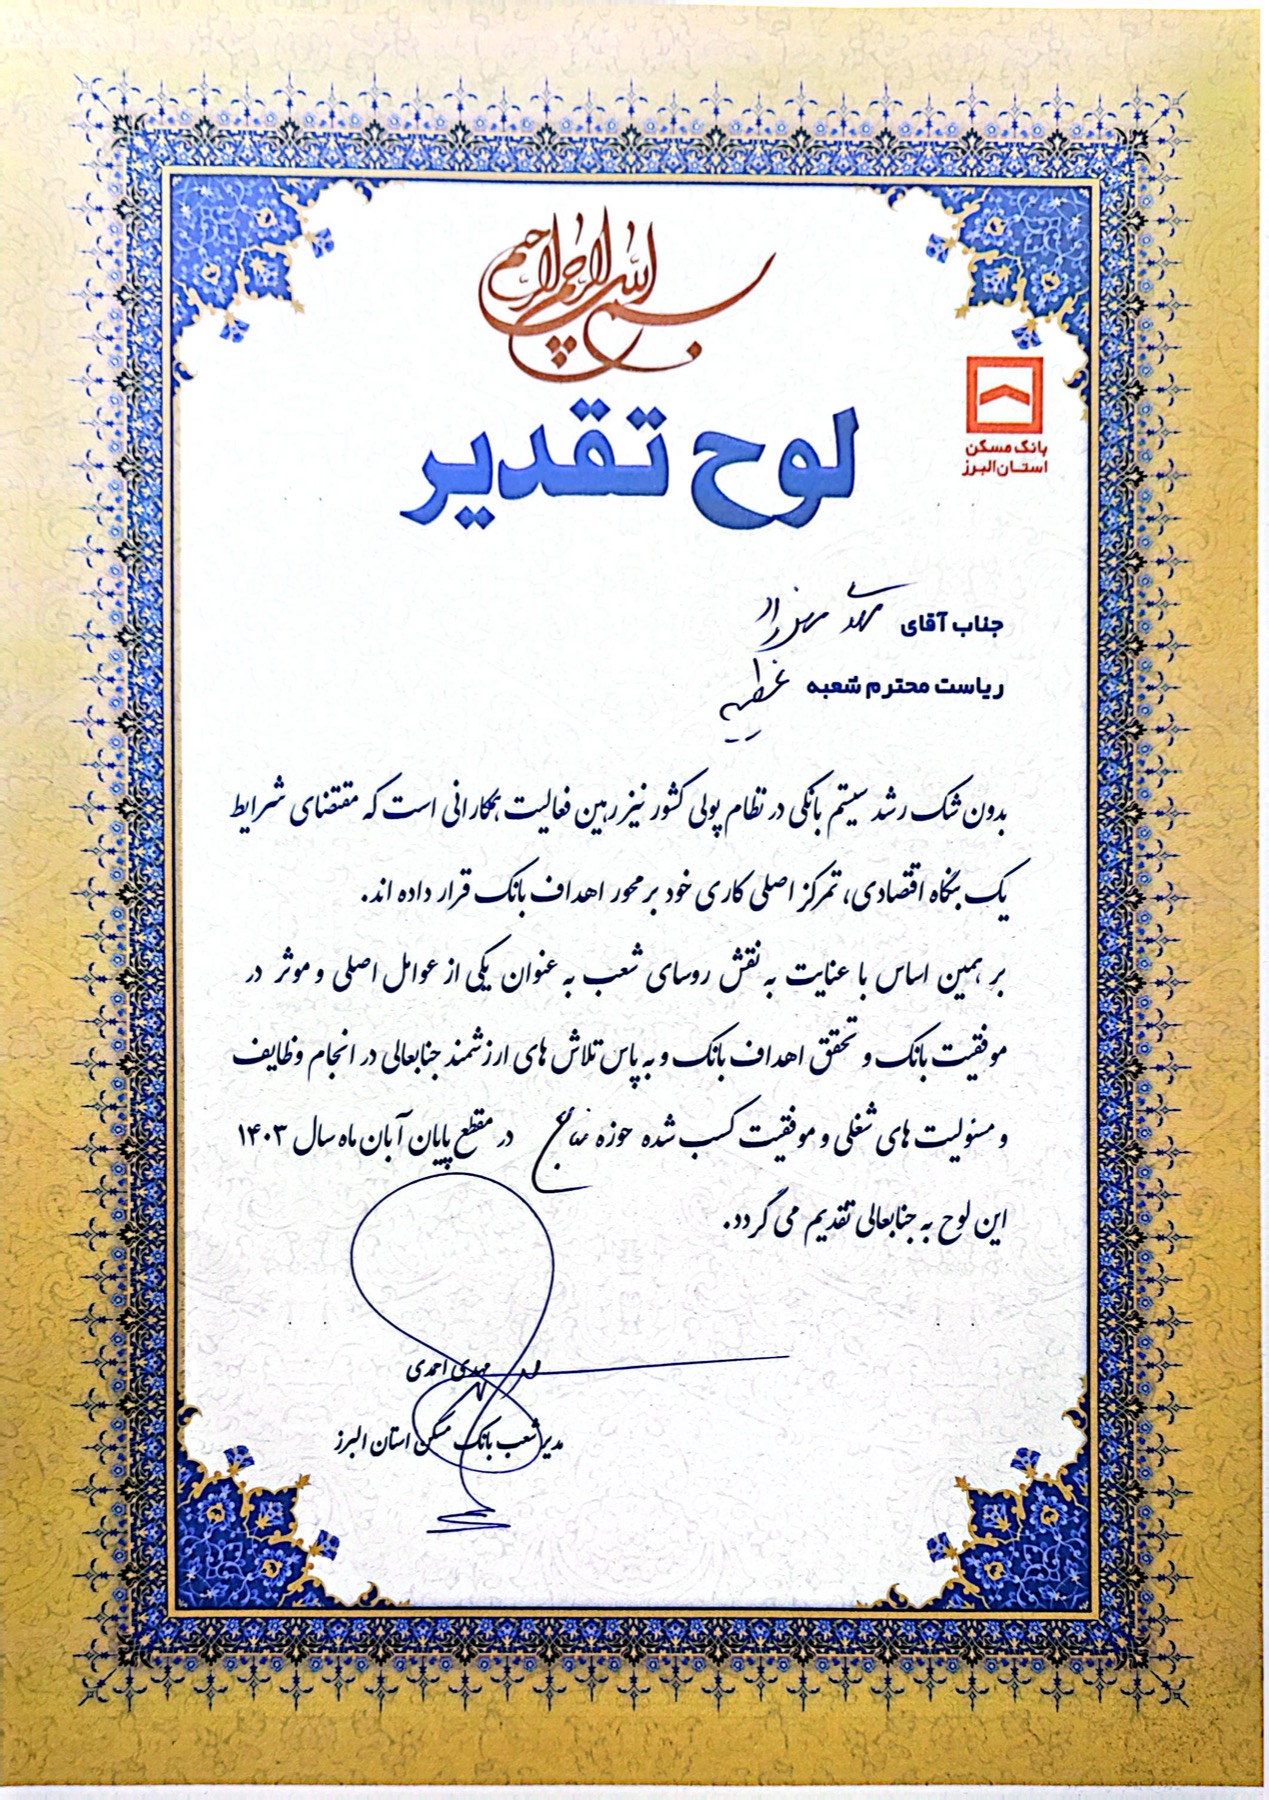 بسم الله الرحمن الرحیم
لوح تقدیر
بانک مسکن
استان البرز
جناب آقای مهدی
ریاست محترم شعبه
بدون شک رشد سیستم بانکی در نظام پولی کشور نیز رهین فعالیت همکارانی است که مقتضای شرایط
یک بنگاه اقتصادی، تمرکز اصلی کاری خود بر محور اهداف بانک قرار داده اند.
بر همین اساس با عنایت به نقش روسای شعب به عنوان یکی از عوامل اصلی و موثر در
موفقیت بانک و تحقق اهداف بانک و به پاس تلاش های ارزشمند جنابعالی در انجام وظایف
و مسئولیت های شغلی و موفقیت کسب شده حوزه منابع در مقطع پایان آبان ماه سال ۱۴۰۳
این لوح به جنابعالی تقدیم می گردد.
مهدی احمدی
مدیر شعب بانک مسکن استان البرز